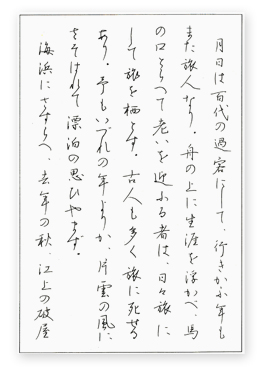 月日は百代の過客にして、行きかふ年も
また旅人なり。舟の上に生涯を浮かべ、馬
の口とらへて老いを迎ふる者は、日々旅に
して旅を栖とす。古人も多く旅に死せる
あり。予もいづれの年よりか、片雲の風に
さそはれて漂泊の思ひやまず、
海浜にさすらへ、去年の秋、江上の破屋